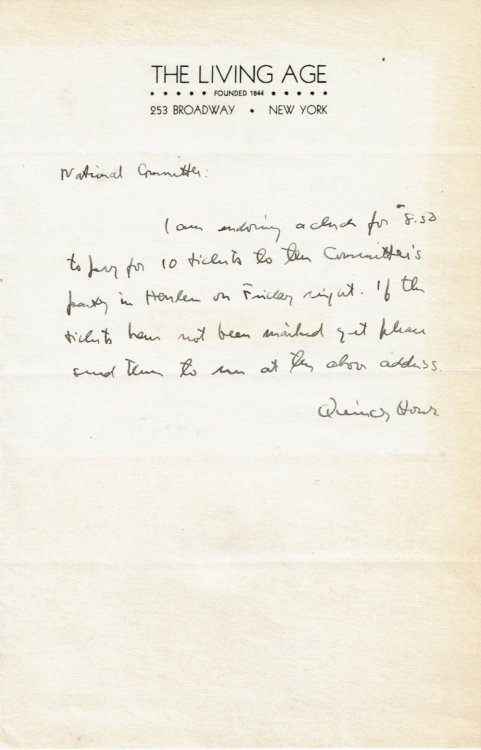 THE LIVING AGE
• • • • • FOUNDED 1844 • • • • •
253 BROADWAY • NEW YORK
National Committee:
I am enclosing a check for $8.50
to pay for 10 tickets to the Committee's
party in Harlem on Friday night. If the
tickets have not been mailed yet please
send them to me at the above address.
Quincy Howe